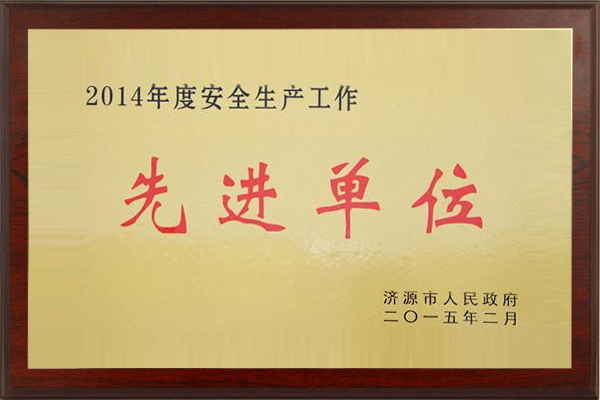 2014年度安全生产工作
先进单位
济源市人民政府
二〇一五年二月